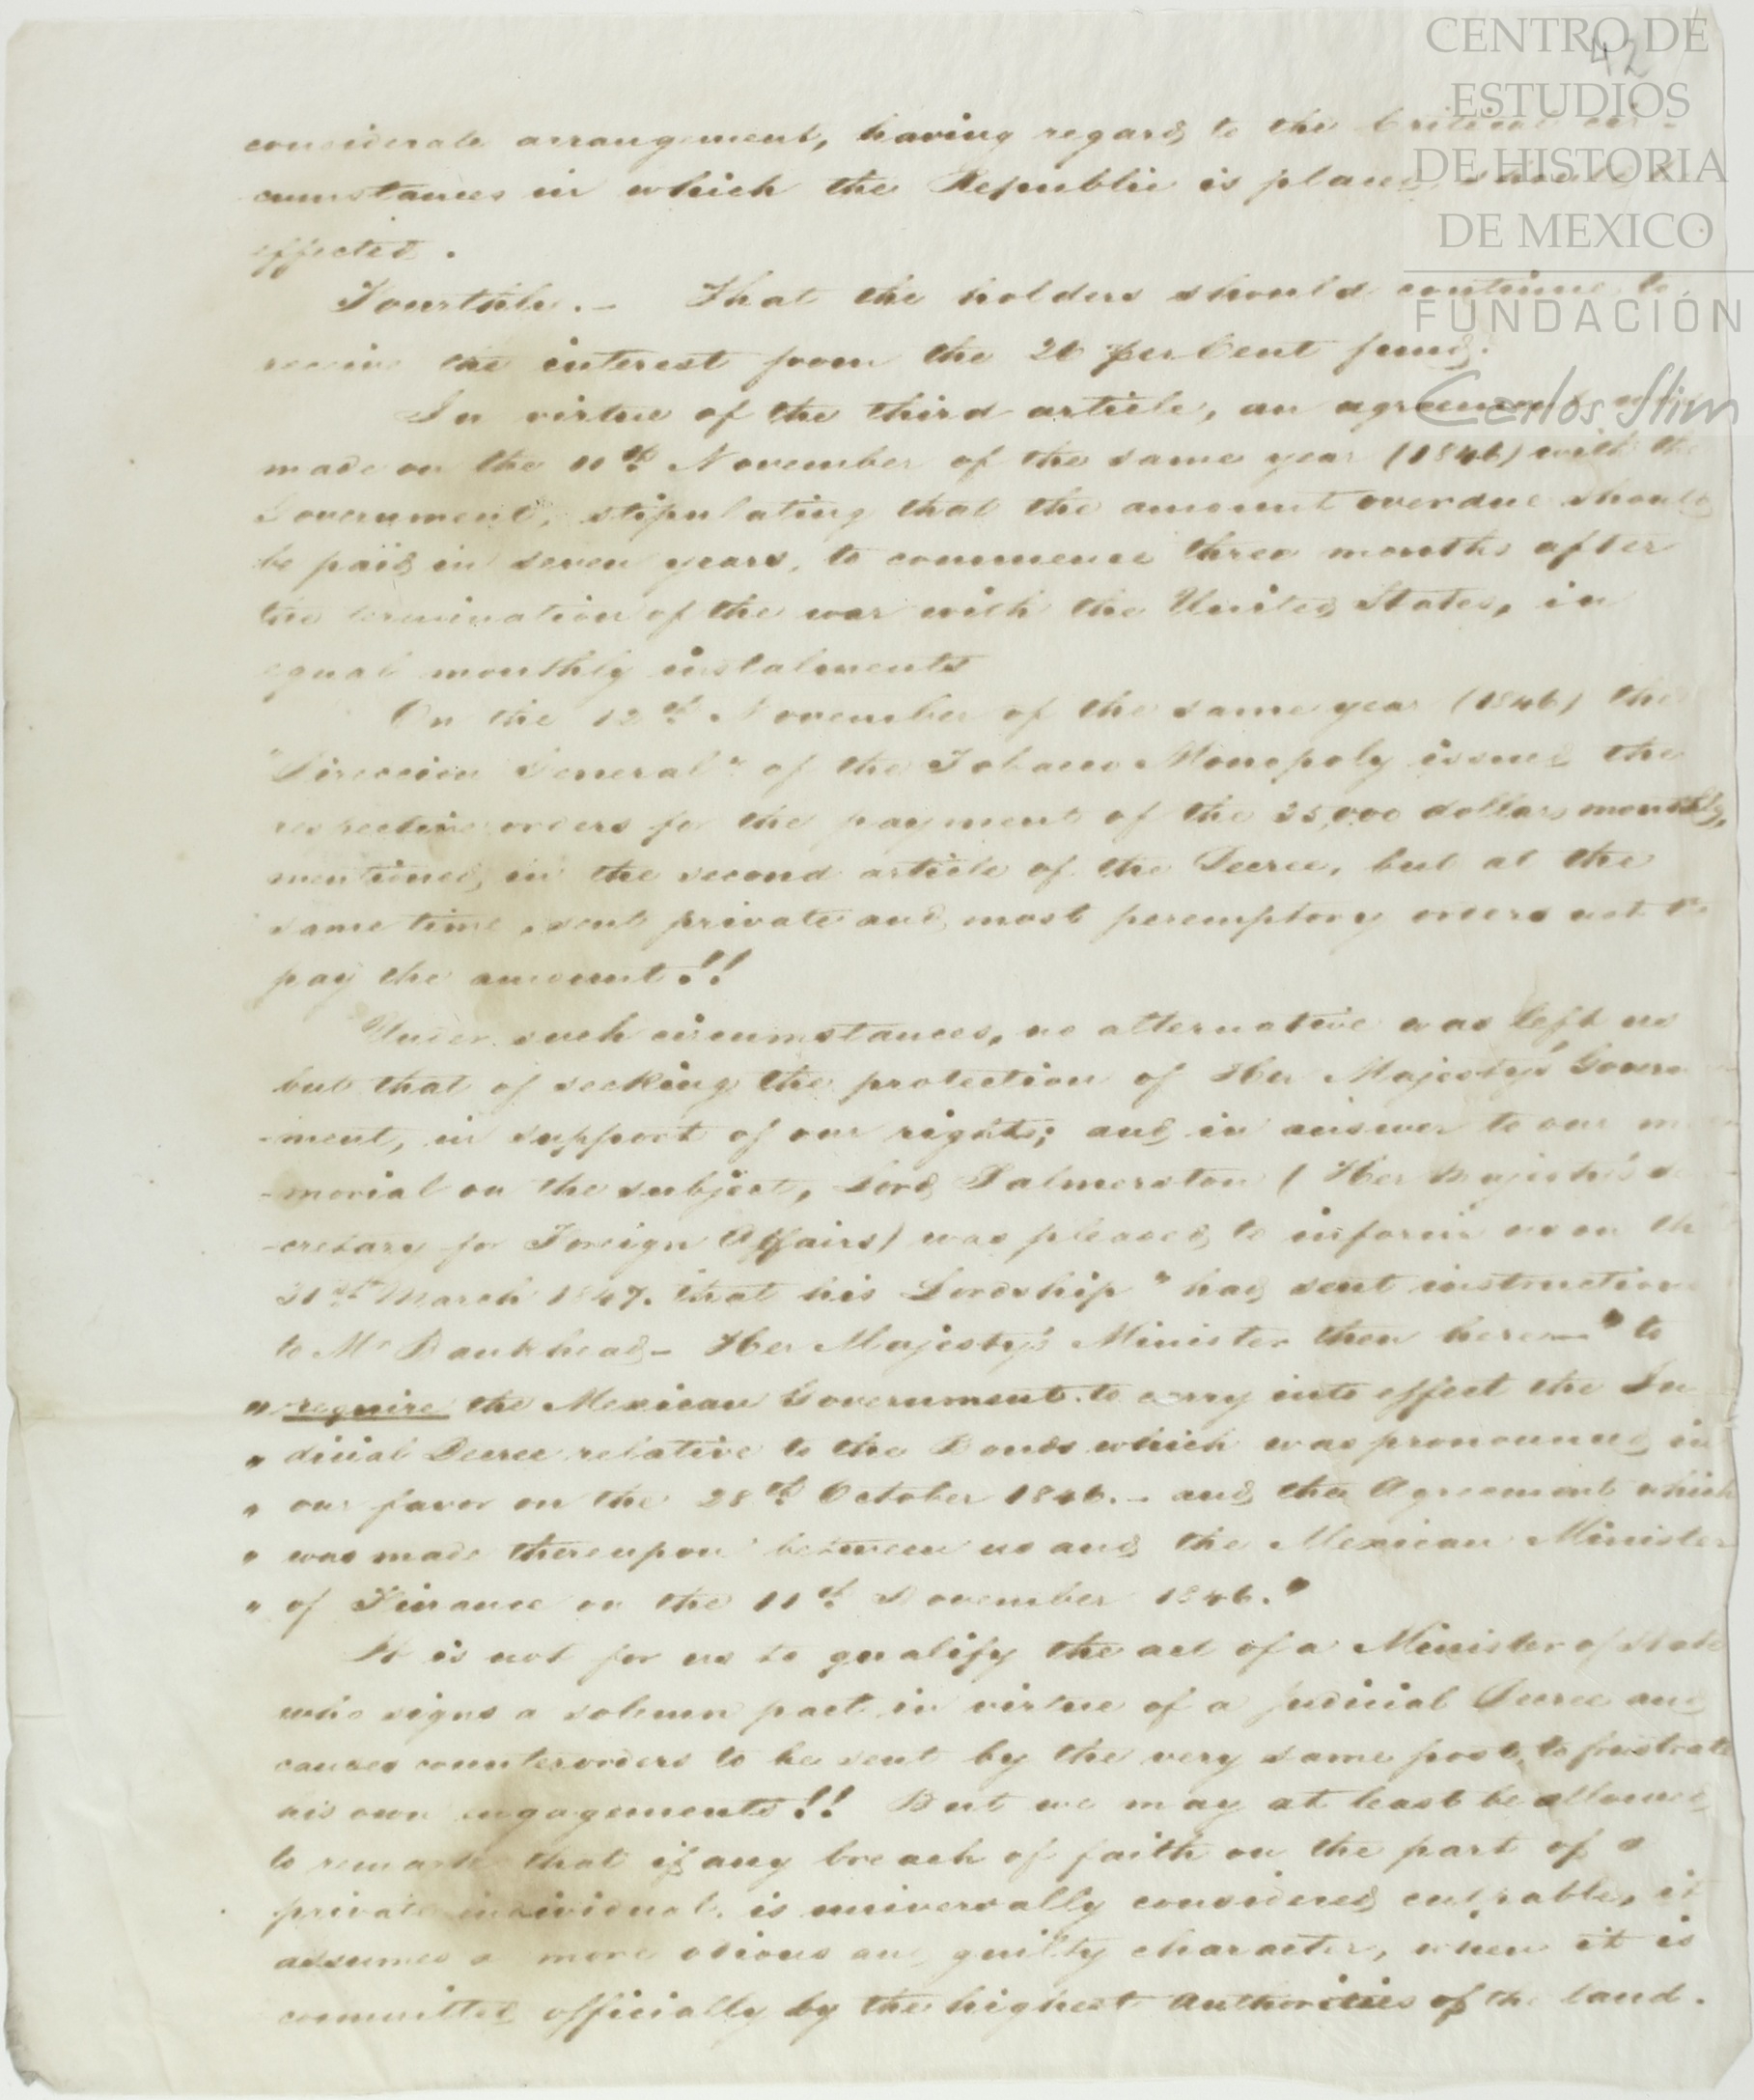 CENTRO DE
ESTUDIOS
DE HISTORIA
DE MEXICO
FUNDACIÓN
Carlos Slim
42
considerate arrangement, having regard to the Critical cir-
cumstances in which the Republic is placed, should be
effected.
Fourthly.- That the holders should continue to
receive the interest from the 26 per Cent fund.
In virtue of the third article, an agreement was
made on the 11th November of the same year (1846) with the
Government, stipulating that the amount overdue should
be paid in seven years, to commence three months after
the termination of the war with the United States, in
equal monthly instalments
On the 12th November of the same year (1846) the
"Direccion General" of the Tobacco Monopoly issued the
respective orders for the payment of the 25,000 dollars monthly,
mentioned in the second article of the Decree, but at the
same time, sent private and most peremptory orders not to
pay the amount!!
Under such circumstances, no alternative was left us
but that of seeking the protection of Her Majesty's Govern-
-ment, in support of our rights; and in answer to our me-
-morial on the subject, Lord Palmerston (Her Majesty's Se-
-cretary for Foreign Affairs) was pleased to inform us on the
31st March 1847. that his Lordship "had sent instructions
to Mr Bankhead - Her Majesty's Minister then here —" to
" require the Mexican Government to carry into effect the Ju
" dicial Decree relative to the Bonds which was pronounced in
" our favor on the 28th October 1846.- and the Agreement which
" was made thereupon between us and the Mexican Minister
" of Finance on the 11th November 1846."
It is not for us to qualify the act of a Minister of State
who signs a solemn pact in virtue of a judicial Decree and
causes counterorders to be sent by the very same post, to frustrate
his own engagements!! But we may at least be allowed
to remark that if any breach of faith on the part of a
private individual, is universally considered culpable, it
assumes a more odious and guilty character, when it is
committed officially by the highest Authorities of the land.